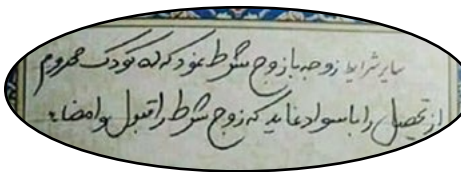 سایر شرایط زوجه با زوج شرط نمود که ۵ کودک محروم
از تحصیل را با سواد نماید که زوج شرط را قبول و امضاء